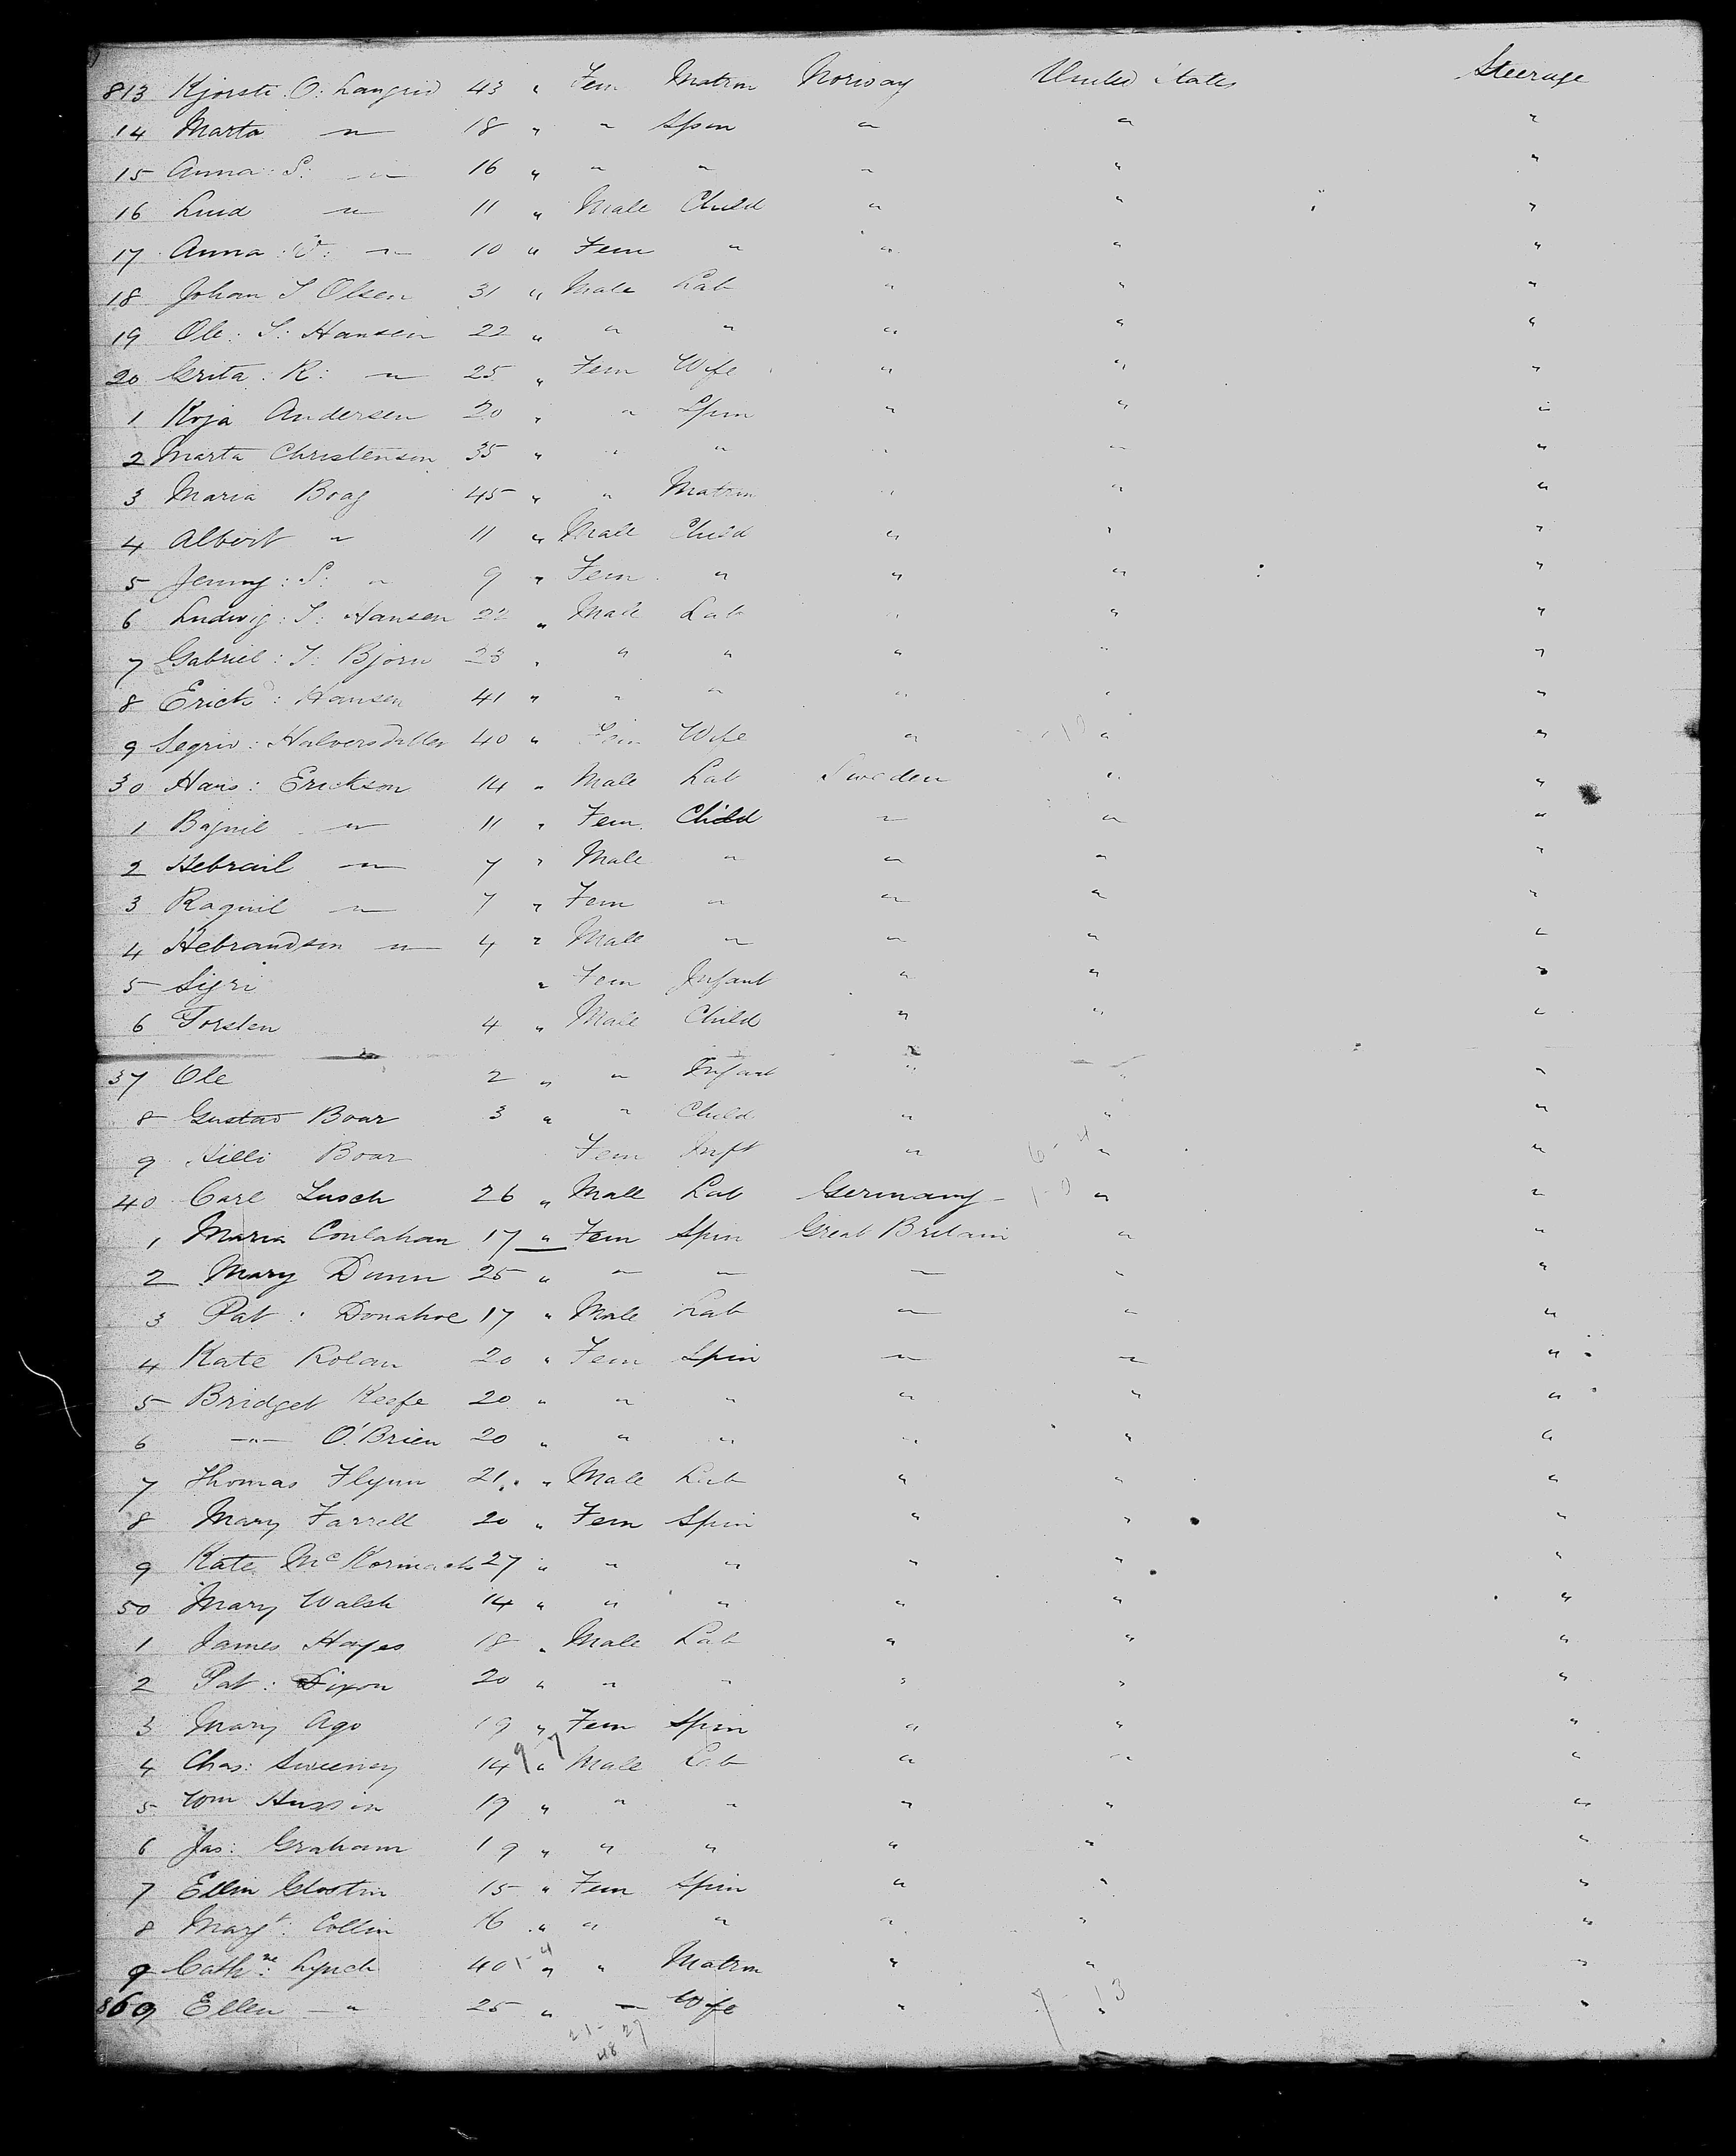 813 Kjorsti O: Langrid 43 " Fem Matrn Norway United States Steerage
14 Marta " 18 " " Spin " " "
15 Anna S: " 16 " " " " " "
16 " 11 " Male Child " " "
17 Anna " 10 " Fem " " " "
18 Johan S Olsen 31 " Male Lab " " "
19 Ole: S: Hansen 22 " " " " " "
20 Grita: R: " 25 " Fem Wife " " "
1 Koja Andersen 20 " " Spin " " "
2 Marta Christensen 35 " " " " " "
3 Maria Boag 45 " " Matrn " " "
4 Albert " 11 " Male Child " " "
5 Jenny: S: " 9 " Fem " " " "
6 Ludwig: S: Hansen 22 " Male Lab " " "
7 Gabriel: S: Bjorn 23 " " " " " "
8 Erich: Hansen 41 " " " " " "
9 Segrid: Halversdatter 40 " Fem Wife " " "
30 Hans: Erickson 14 " Male Lab Sweden " "
1 Bagnil " 11 " Fem Child " " "
2 Hebrail " 7 " Male " " " "
3 Ragnil " 7 " Fem " " " "
4 Hebrandsen " 4 " Male " " " "
5 Sigri " Fem Infant " " "
6 Torsten 4 " Male Child " " "
37 Ole 2 " " Infant " " "
8 Gustav Boar 3 " " Child " " "
9 Hilli Boar Fem Inft " " "
40 Carl Lusch 26 " Male Lab Germany " "
1 Maria Conlahan 17 " Fem Spin Great Britain " "
2 Mary Dunn 25 " " " " " "
3 Pat: Donahoe 17 " Male Lab " " "
4 Kate Rolan 20 " Fem Spin " " "
5 Bridget Keefe 20 " " " " " "
6 " O'Brien 20 " " " " " "
7 Thomas Flynn 21 " Male Lab " " "
8 Mary Farrell 20 " Fem Spin " " "
9 Kate McKormack 27 " " " " " "
50 Mary Walsh 14 " " " " " "
1 James Hayes 18 " Male Lab " " "
2 Pat: Dixon 20 " " " " " "
3 Mary Ago 19 " Fem Spin " " "
4 Chas: Sweeney 14 " Male Lab " " "
5 Wm Hussin 19 " " " " " "
6 Jas: Graham 19 " " " " " "
7 Ellin Glostin 15 " Fem Spin " " "
8 Margt: Collin 16 " " " " " "
9 Cathne: Lynch 40 " " Matrn " " "
869 Ellen " 25 " " Wife " " "
21 - 27
48